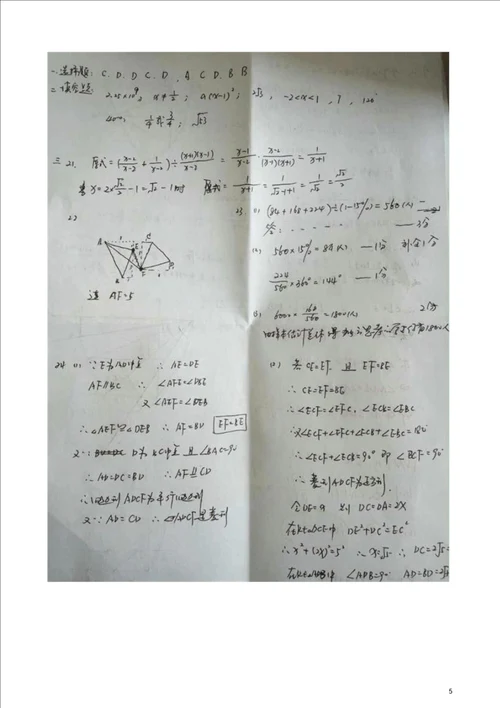 一. 选择题: C. D. D C. D. A C D. B B
二. 填空题: 2.25×10⁹; x≠1/2; a(x-1)²; 2√3, -2<x<1, 7, 120°
三 21. 原式=(x-2/x-2 + 1/x-2)÷(x+1)(x-1)/x-2 = x-1/x-2 · x-2/(x-1)(x+1) = 1/x+1
当x=2×√2/2-1=√2-1时 原式=1/x+1=1/√2-1+1=1/√2=√2/2
22
连 AF=5
23 (1) (84+168+224)÷(1-15%)=560(人)
答:
(2) 560×15%=84(人) —1分 补全1分
224/560×360°=144° —1分
(3) 6000×168/560=1800(人) 2分
24 (1) ∵E为AD中点 ∴AE=DE
AF∥BC ∴∠AFE=∠DBE
又∠AEF=∠DEB
∴△AEF≌△DEB ∴AF=BD EF=BE
又∵D为BC中点 且∠BAC=90°
∴AD=DC=BD ∴AF∥CD
∴四边形ADCF为平行四边形
又∵AD=CD ∴▱ADCF是菱形
(2) 且EF=BE
∴CE=EF=BE
∴∠ECF=∠EFC, ∠ECB=∠EBC
又∠ECF+∠EFC+∠ECB+∠EBC=180°
∴∠ECF+∠ECB=90° 即∠BCF=90°
DC=DA=2X
在Rt△DCE中 DE²+DC²=EC²
∴x²+(2x)²=5² ∴x=√5 ∴DC=2√5=
∠ADB=90° AD=BD=2√5
5